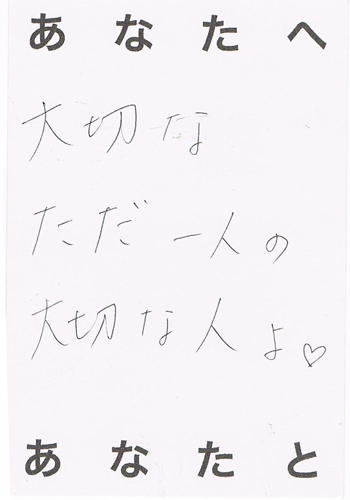 あなたへ
大切な
ただ一人の
大切な人よ♡
あなたと